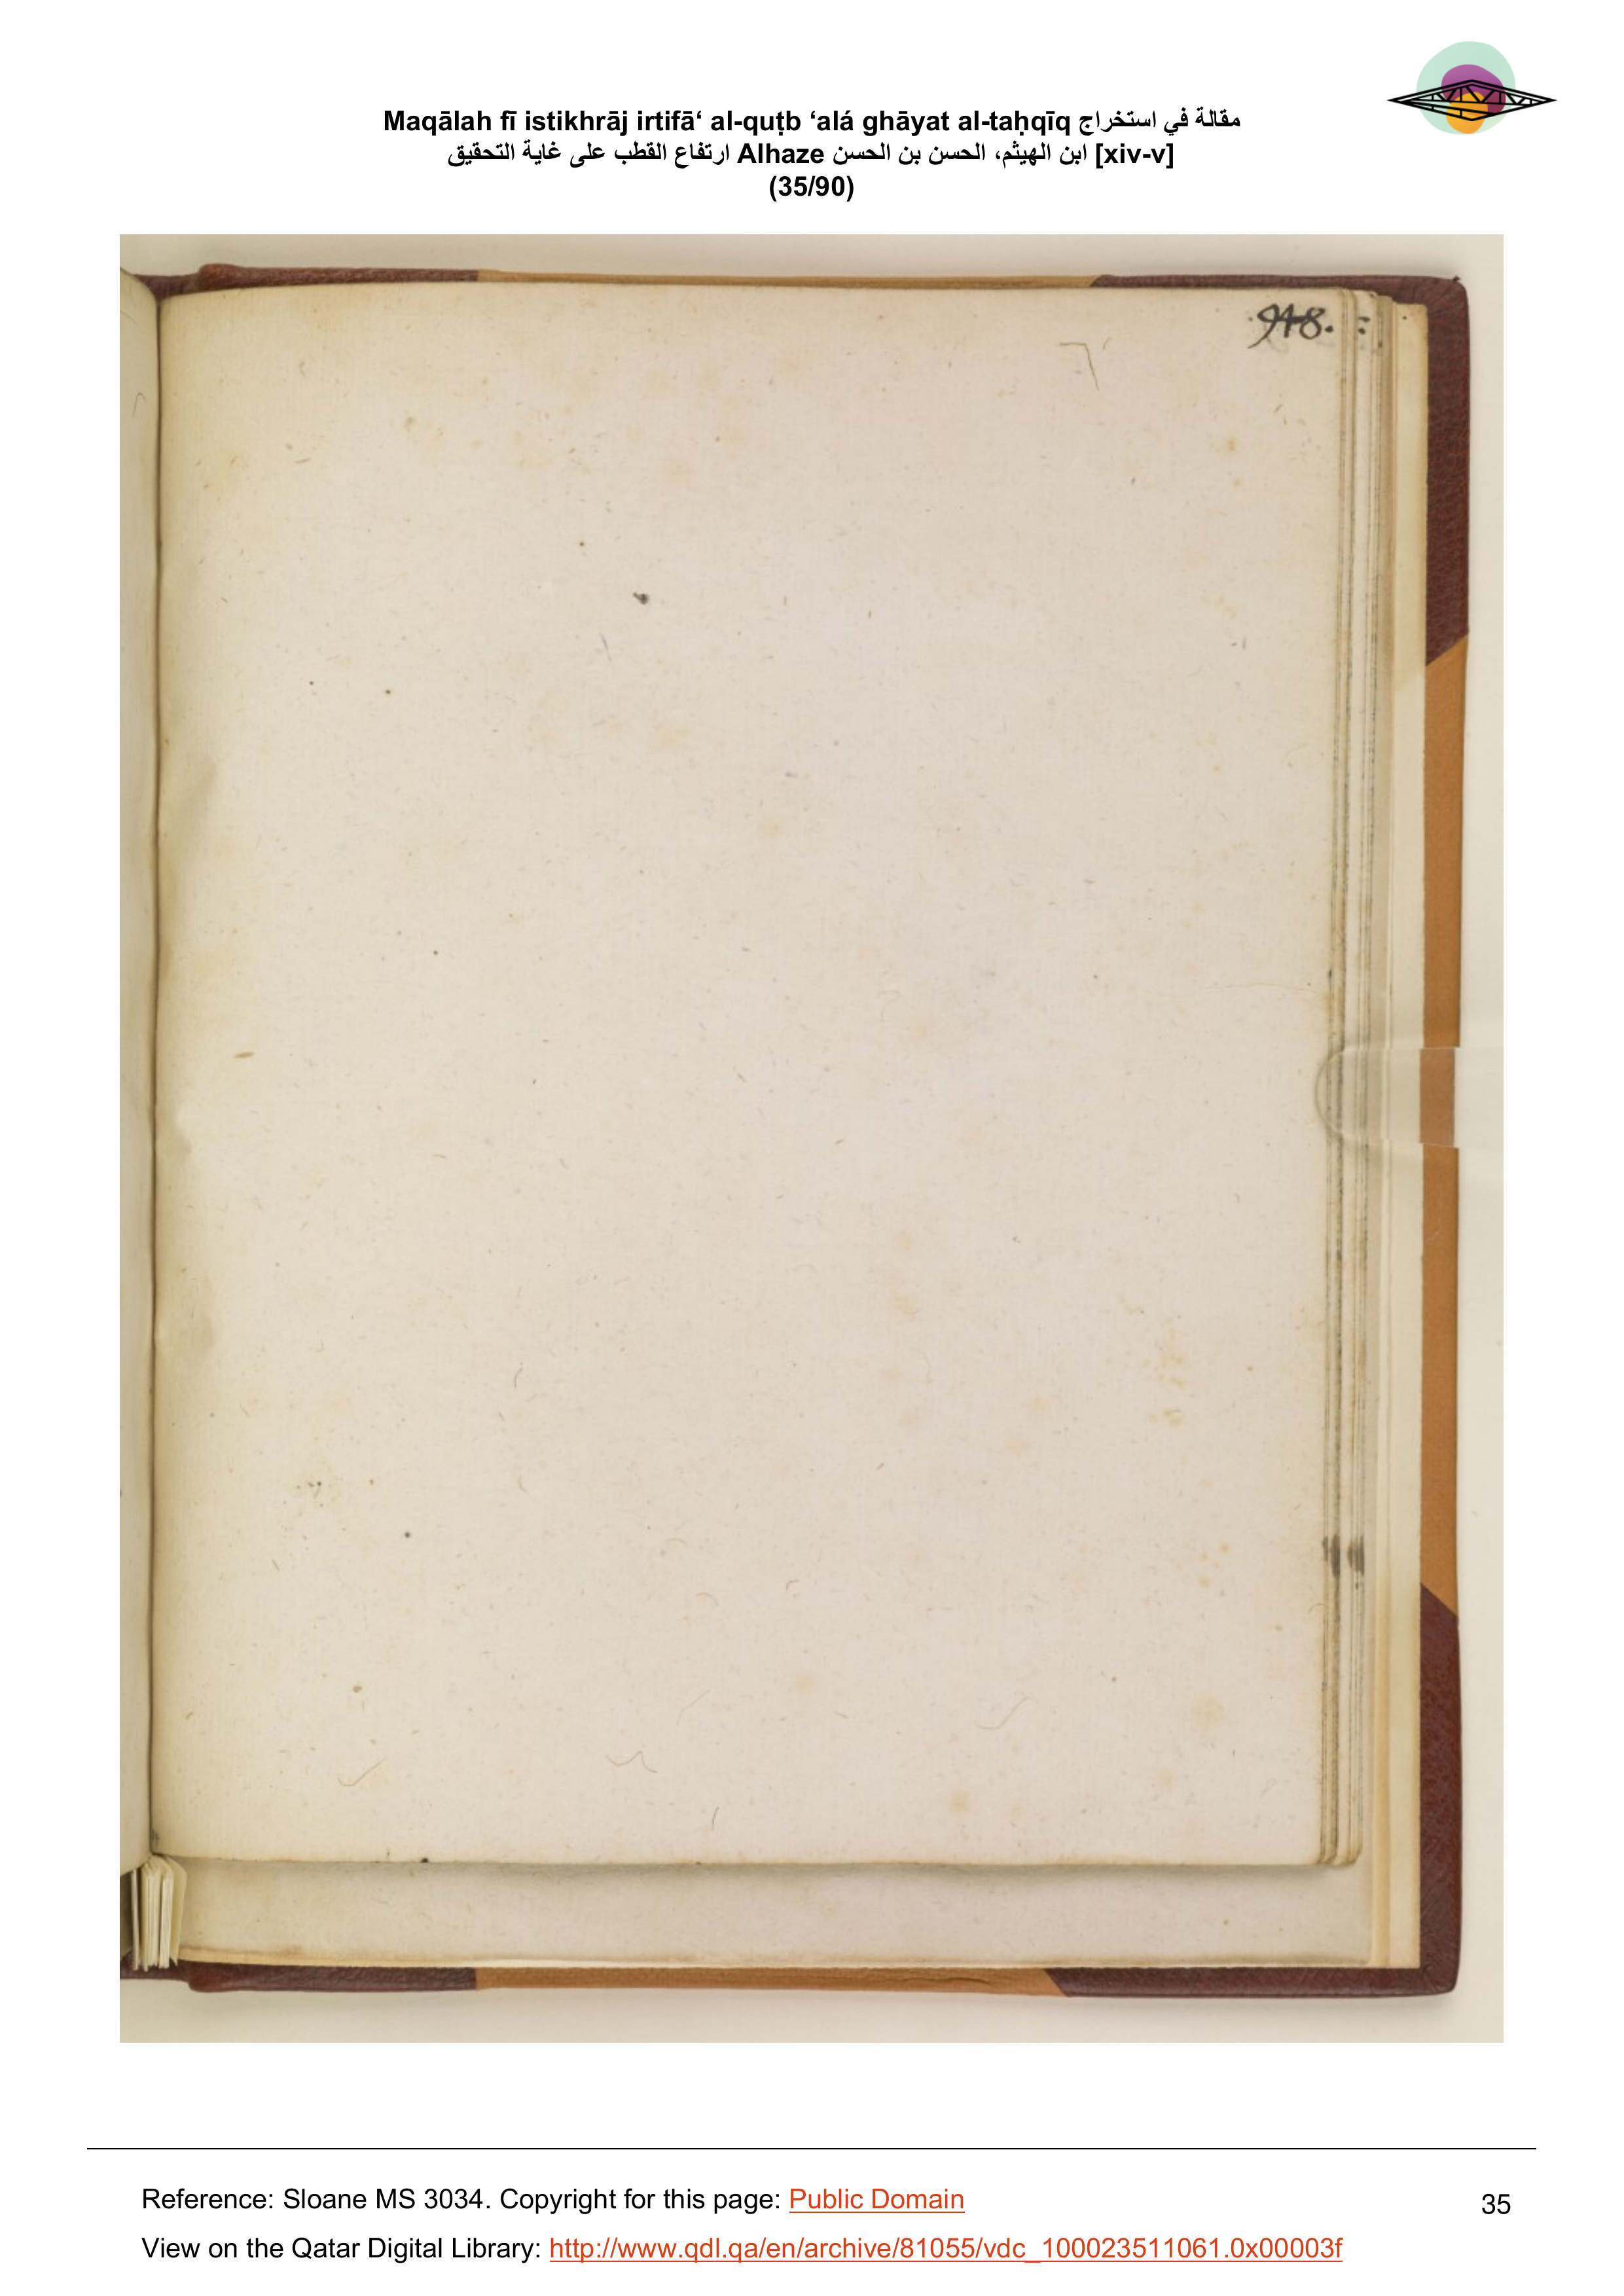 Maqālah fī istikhrāj irtifā‘ al-quṭb ‘alá ghāyat al-taḥqīq مقالة في استخراج
ارتفاع القطب على غاية التحقيق Alhaze ابن الهيثم، الحسن بن الحسن [xiv-v]
(35/90)
948.
Reference: Sloane MS 3034. Copyright for this page: Public Domain
35
View on the Qatar Digital Library: http://www.qdl.qa/en/archive/81055/vdc_100023511061.0x00003f